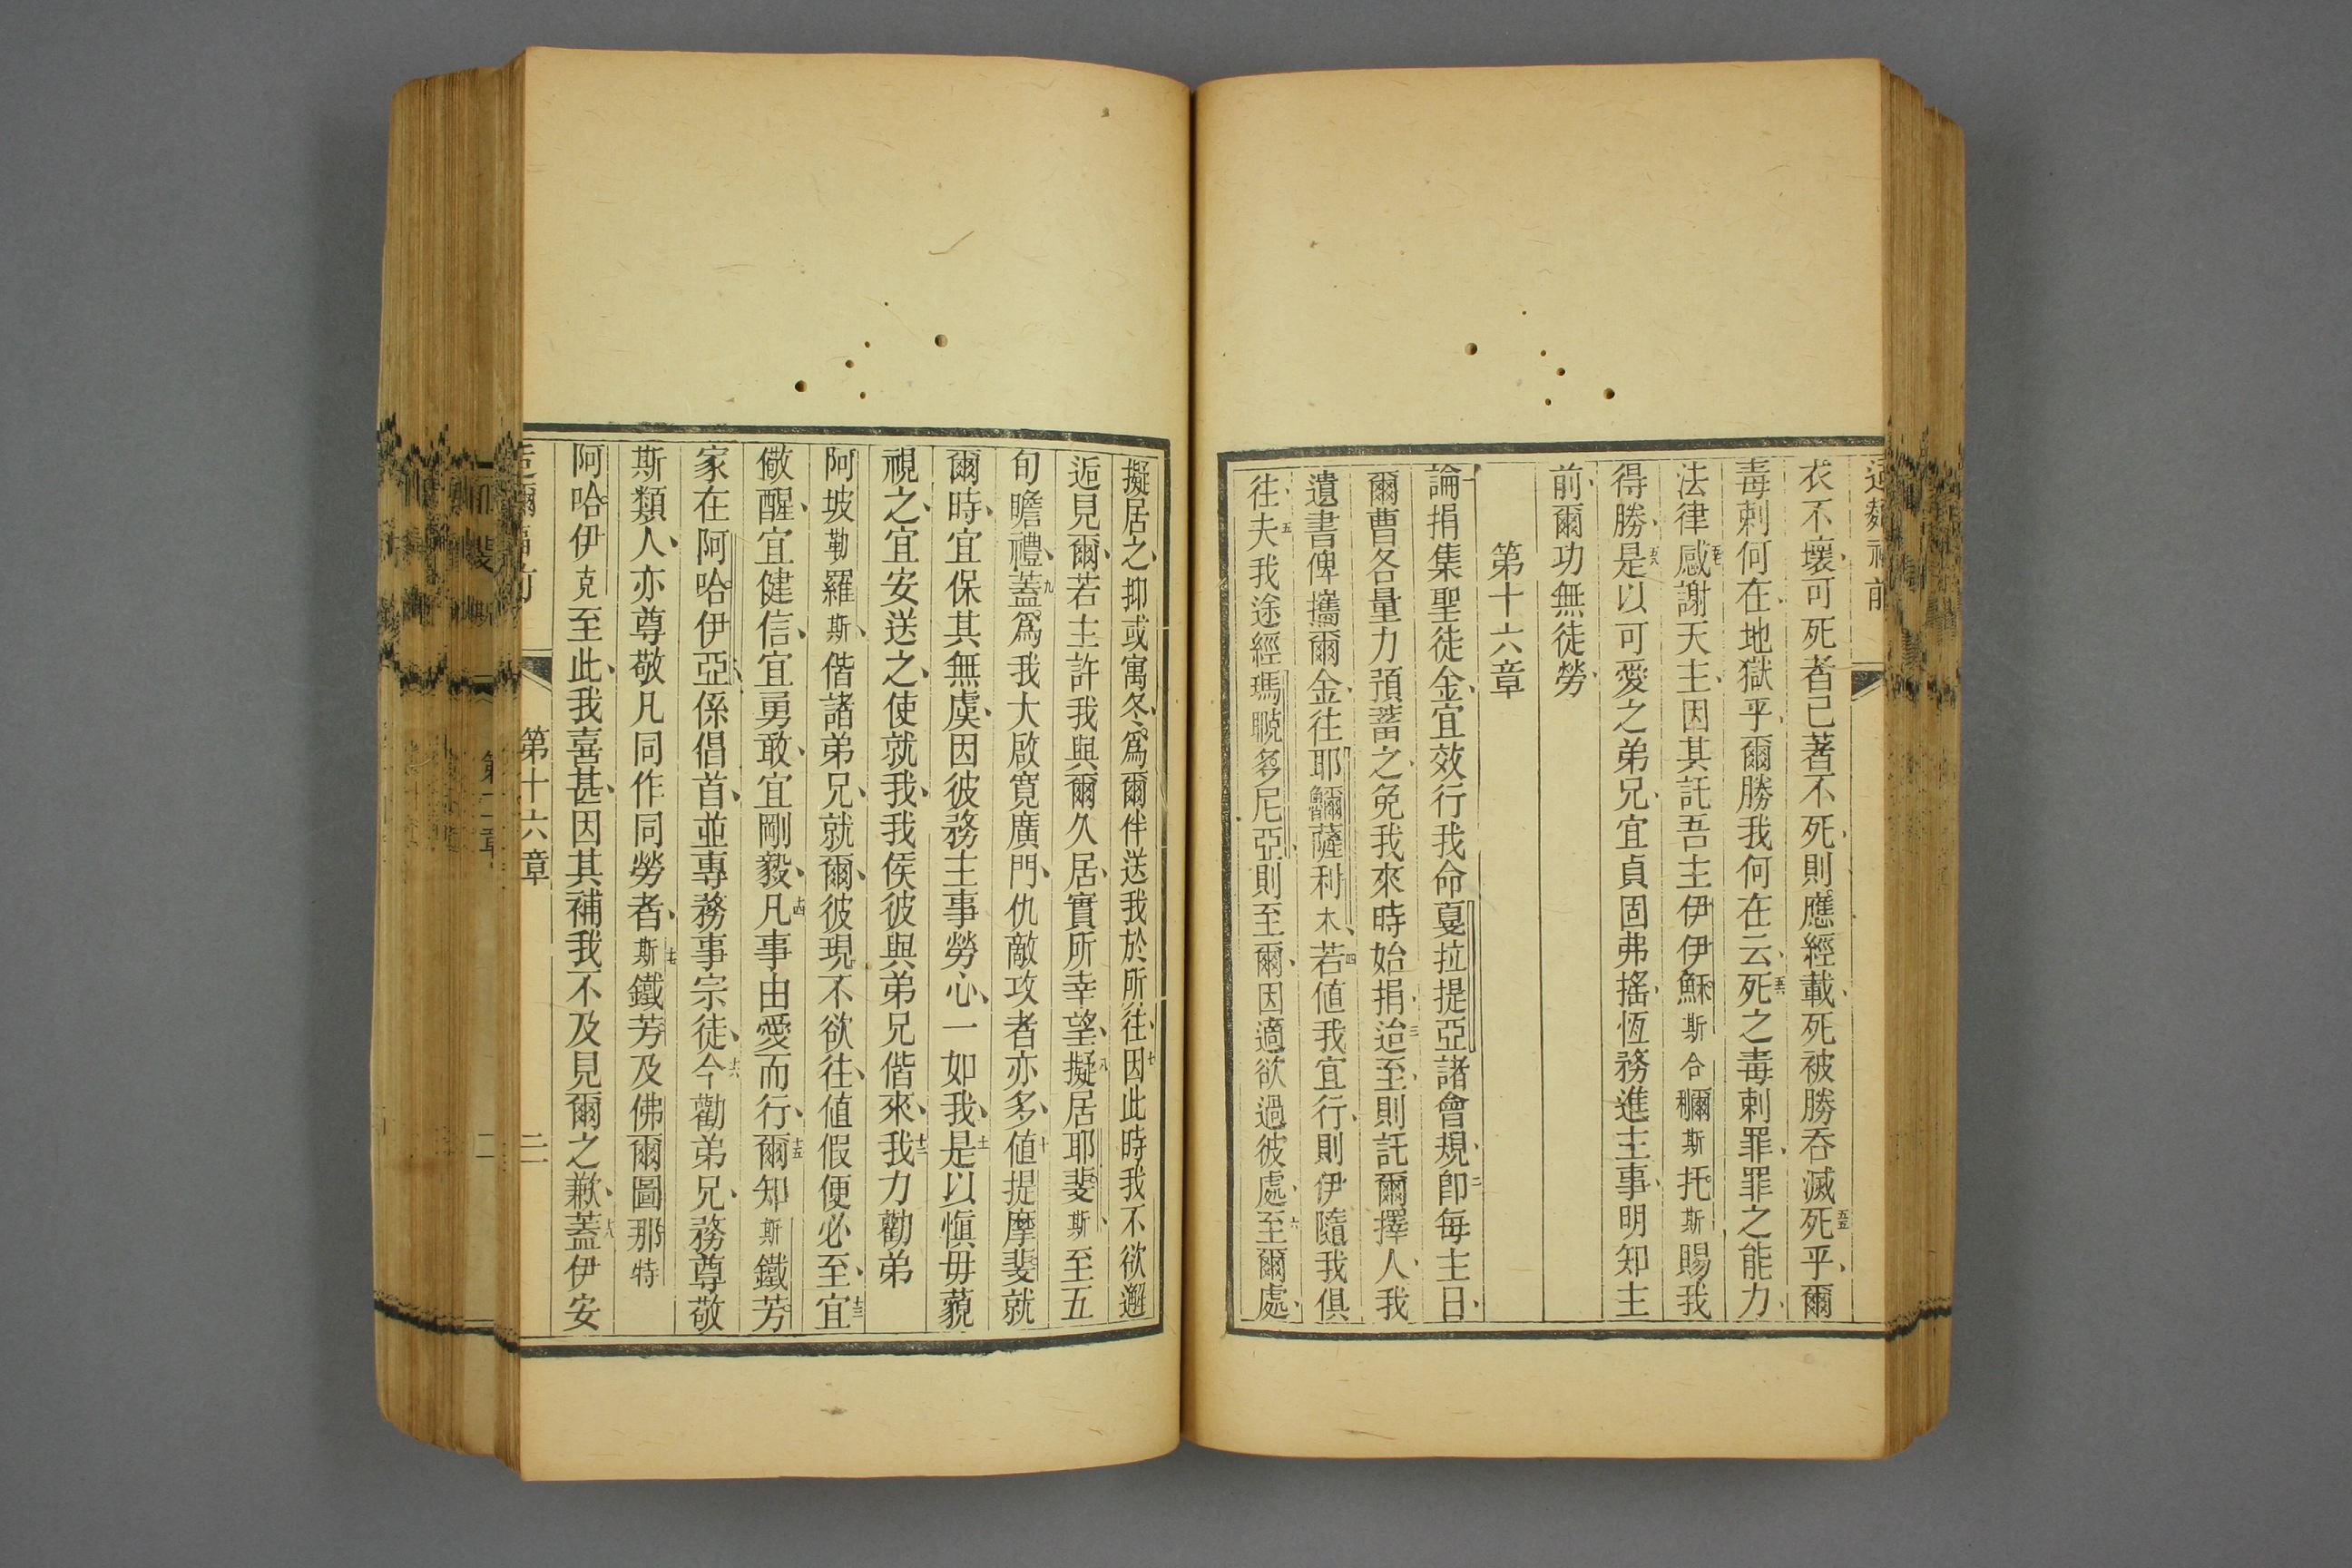 衣不壞、可死者已著不死、則應經載、死被勝吞滅、五五死乎、爾
毒刺何在、地獄乎、爾勝我何在、云、死之毒刺罪、罪之能力、
法律感謝天主、因其託吾主伊伊穌斯合𥠖斯托斯賜我
得勝、五八是以可愛之弟兄、宜貞固弗搖、恆務進主事、明知主
前、爾功無徒勞、
第十六章
一論捐集聖徒金、宜效行我命戛拉提亞諸會規、二卽每主日、
爾曹各量力預蓄之、免我來時始捐、三迨至、則託爾擇人、我
遺書俾攜爾金、往耶薩利木、四若値我宜行、則伊隨我俱
往、五夫我途經瑪多尼亞、則至爾、因適欲過彼處、六至爾處、
擬居之、抑或寓冬、爲爾伴送我於所往、七因此時我不欲邂
逅見爾、若主許我與爾久居、實所幸望、八擬居耶斐斯、至五
旬瞻禮、九蓋爲我大啟寬廣門、仇敵攻者亦多、十値提摩斐就
爾時、宜保其無虞、因彼務主事勞心、一如我、十一是以愼毋藐
視之、宜安送之、使就我、我俟彼與弟兄偕來、十二我力勸弟
阿坡勒羅斯、偕諸弟兄、就爾、彼現不欲往、値假便必至、十三宜
儆醒、宜健信、宜勇敢、宜剛毅、十四凡事由愛而行、十五爾知斯鐵芳
家在阿哈伊亞、係倡首、並專務事宗徒、十六今勸弟兄、務尊敬
斯類人、亦尊敬凡同作同勞者、十七斯鐵芳及佛爾圖那特
阿哈伊克至此、我喜甚、因其補我不及見爾之歉、十八蓋伊安
第十六章
二